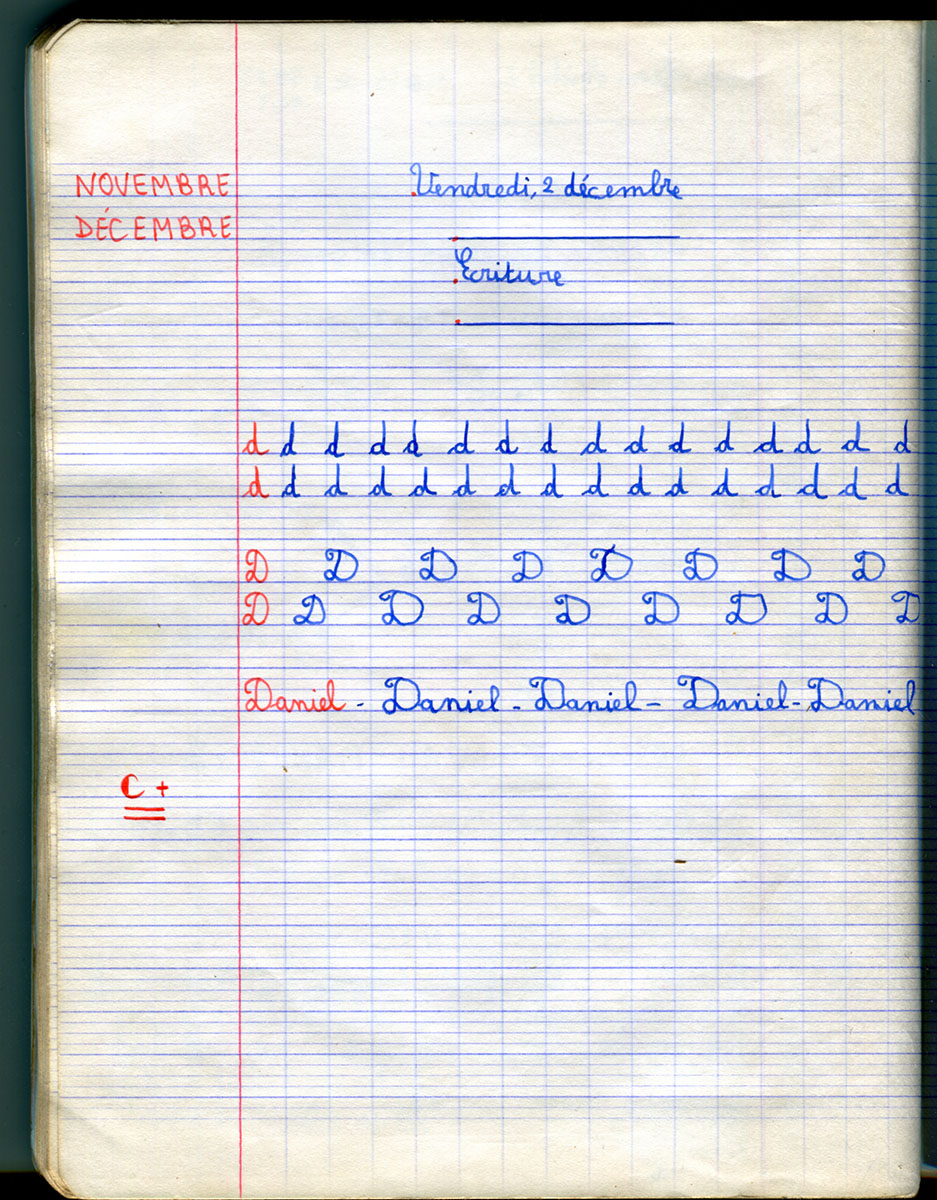 NOVEMBRE
DÉCEMBRE
Vendredi, 2 décembre
Ecriture
d d d d d d d d d d d d d d d d
d d d d d d d d d d d d d d d d
D D D D D D D D
D D D D D D D D D
Daniel - Daniel - Daniel - Daniel - Daniel
C +